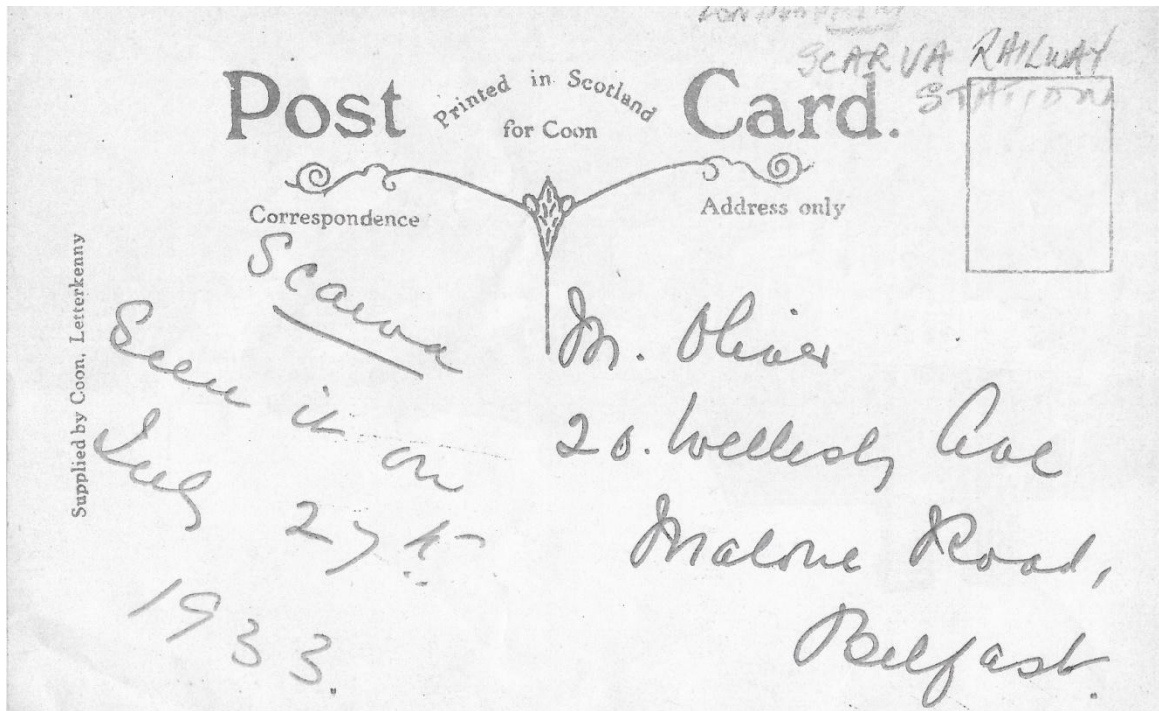 SCARVA RAILWAY
STATION
Post Card.
Printed in Scotland
for Coon
Correspondence
Address only
Supplied by Coon, Letterkenny
Scarva
Seen it on
July 27th
1933.
M. Oliver
20. Wellesly Ave
Malone Road,
Belfast.